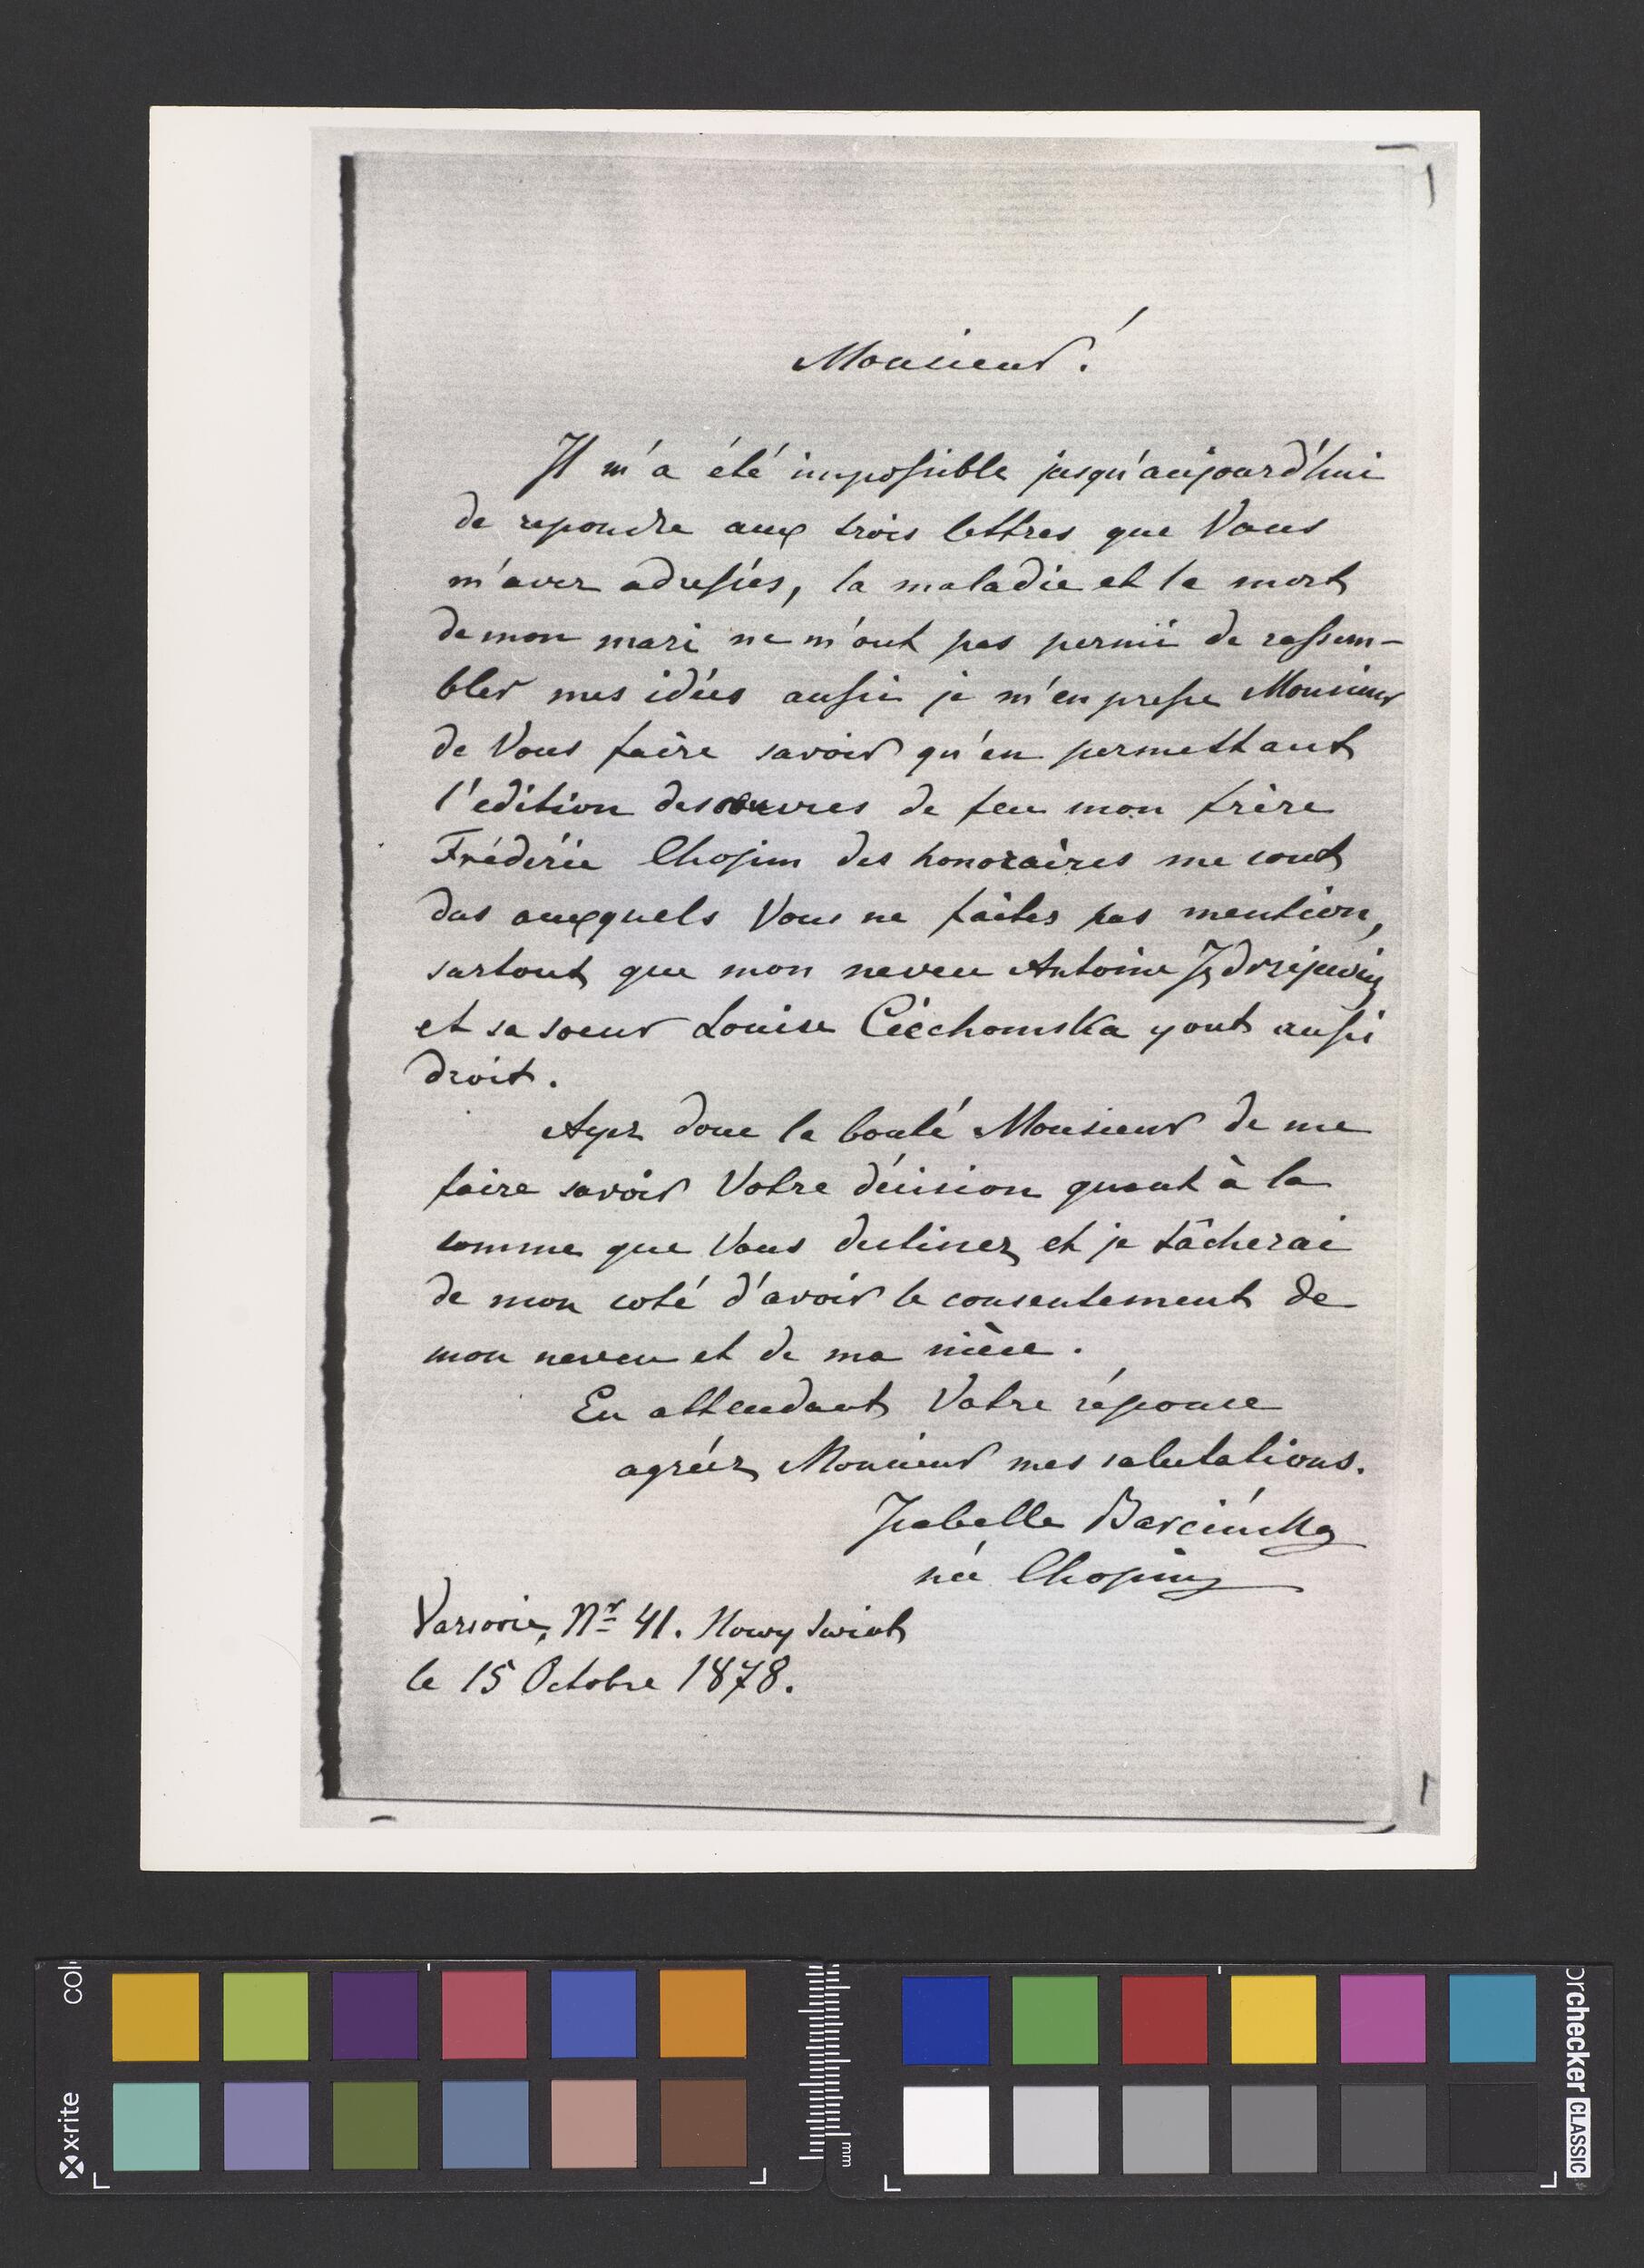 Monsieur!
Il m'a été impossible jusqu'aujourd'hui
de repondre aux trois lettres que Vous
m'avez adressées, la maladie et la mort
de mon mari ne m'ont pas permi de rassem-
bler mes idées aussi je m'en presse Monsieur
de Vous faire savoir qu'en permettant
l'edition des oeuvres de feu mon frère
Fréderic Chopin des honoraires me sont
dus auxquels Vous ne faites pas mention,
surtout que mon neveu Antoine Jędrzejewicz
et sa soeur Louise Ciéchomska y ont aussi
droit.
Ayez donc la bonté Monsieur de me
faire savoir Votre décision quant à la
somme que Vous destinez et je tâcherai
de mon coté d'avoir le consentement de
mon neveu et de ma nièce.
En attendant Votre réponse
agréez Monsieur mes salutations.
Isabelle Barcińska
née Chopin
Varsovie, Nr 41. Nowy Swiat
le 15 Octobre 1878.
x-rite
colorchecker CLASSIC
mm